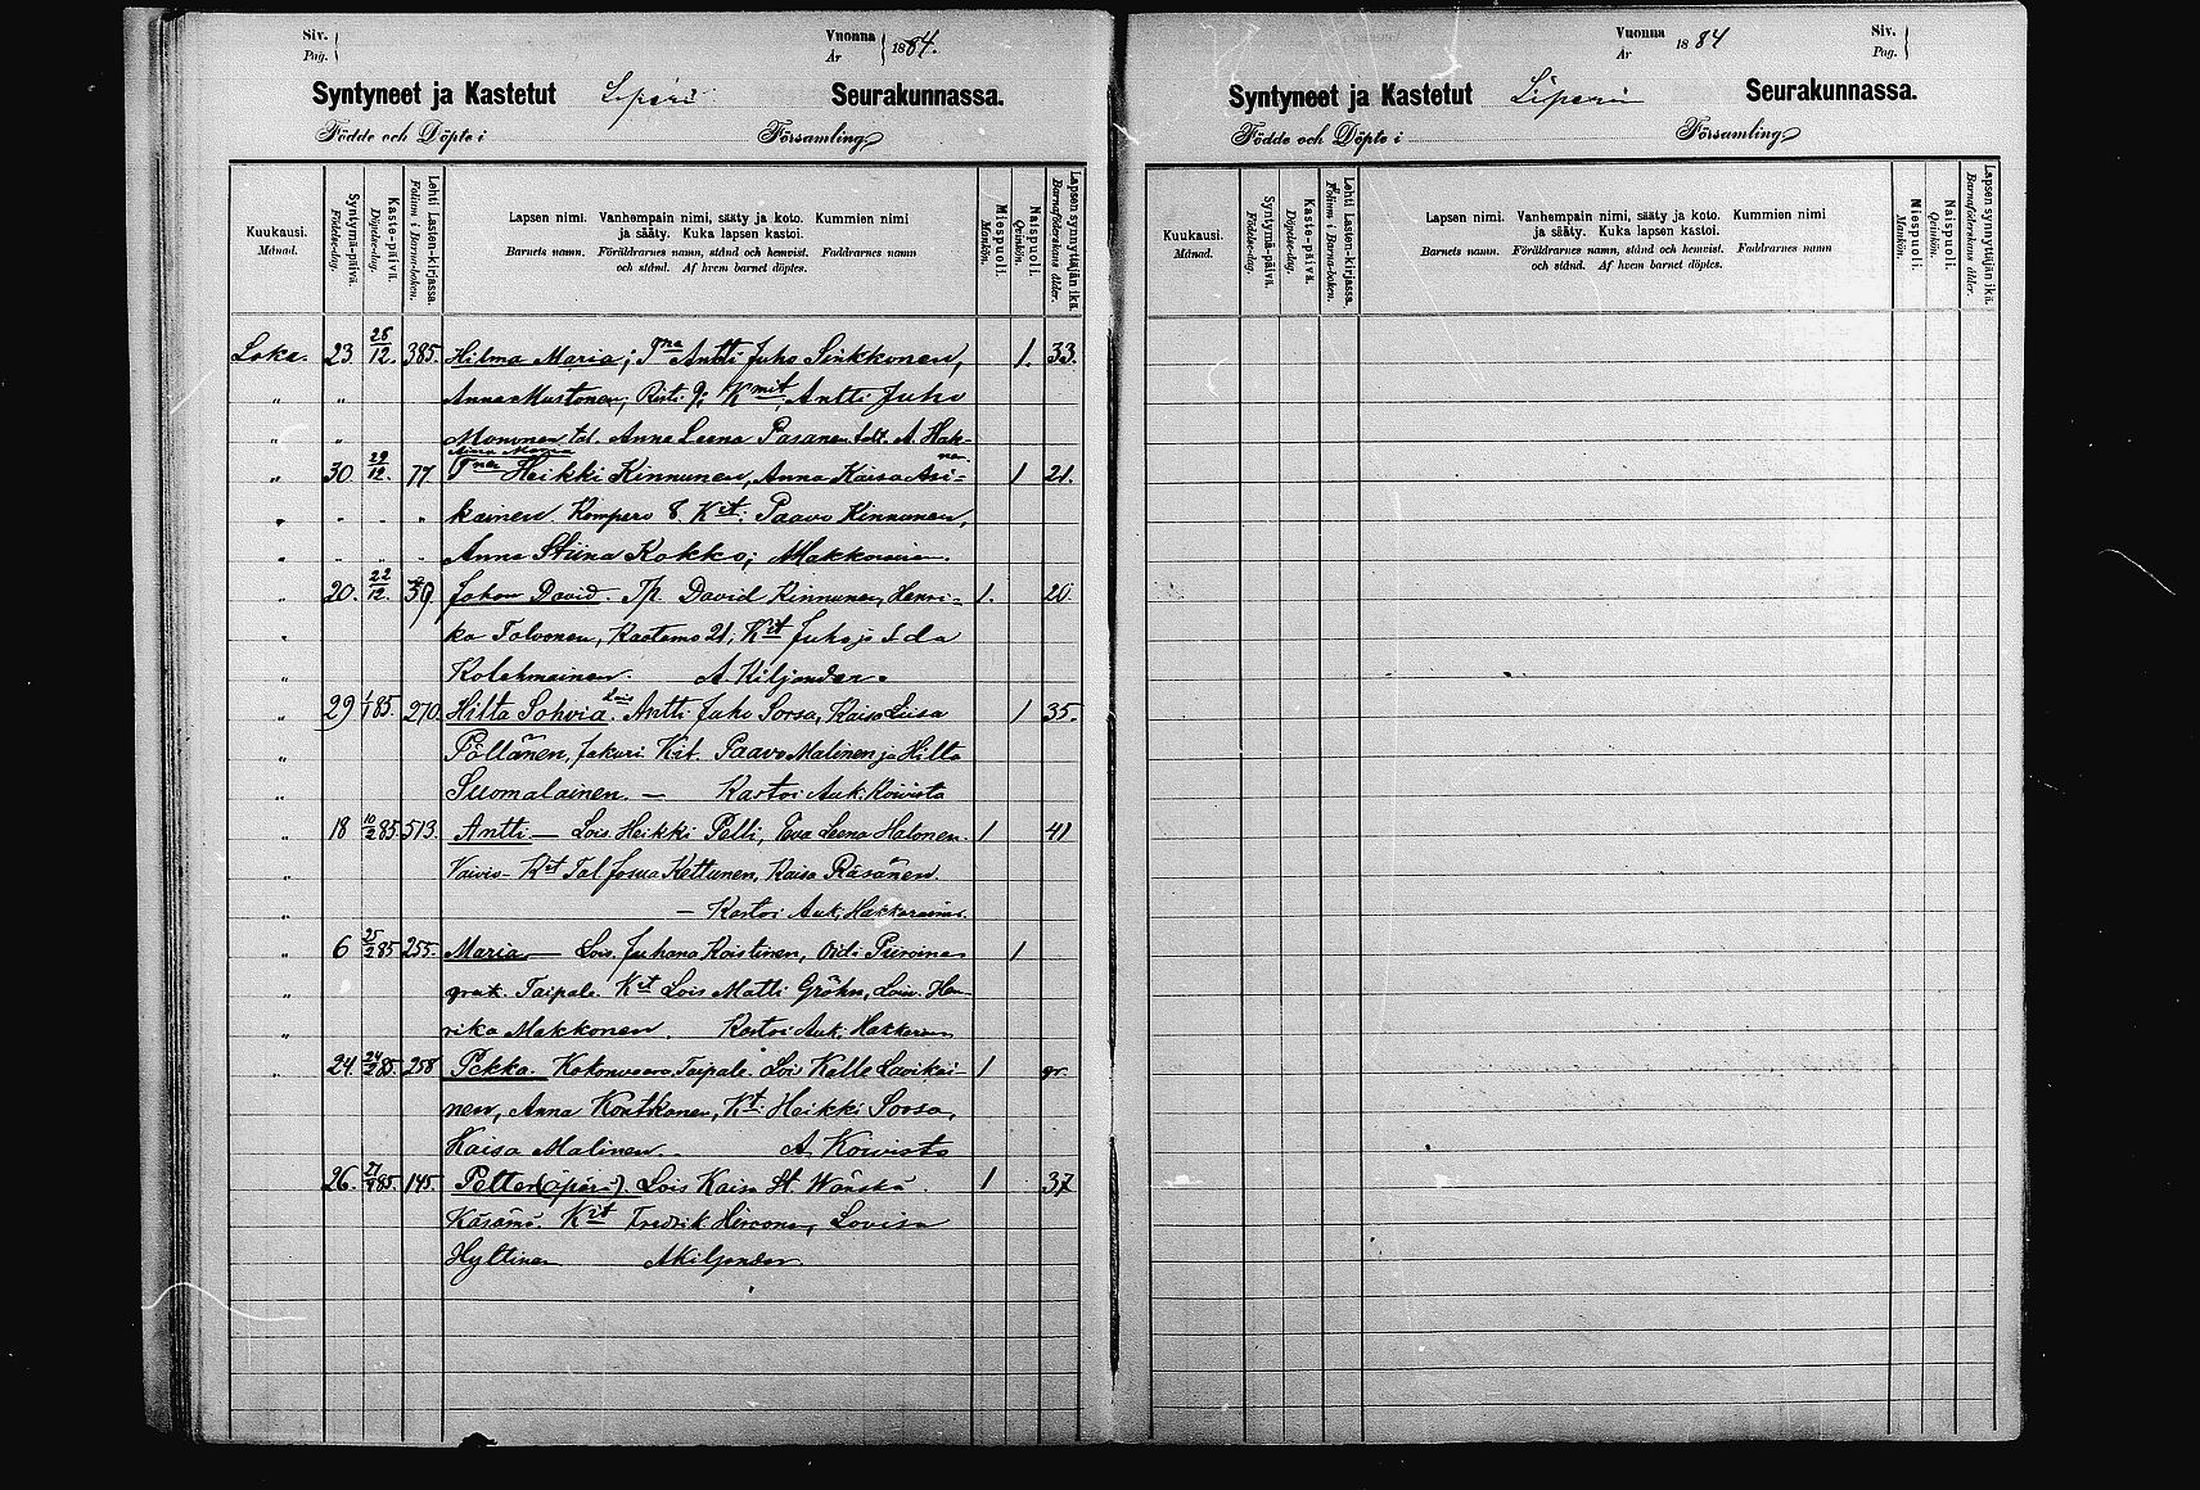 Siv.
Pag.
Vuonna
År
1884.
Syntyneet ja Kastetut Liperi Seurakunnassa.
Födde och Döpte i Församling
Kuukausi.
Månad.
Syntymä-päivä.
Födelse-dag.
Kaste-päivä.
Döpelse-dag.
Lehti Lasten-kirjassa.
Folium i Barna-boken.
Lapsen nimi. Vanhempain nimi, sääty ja koto. Kummien nimi
ja sääty. Kuka lapsen kastoi.
Barnets namn. Föräldrarnes namn, stånd och hemvist. Faddrarnes namn
och stånd. Af hvem barnet döptes.
Miespuoli.
Mankön.
Naispuoli.
Qvinkön.
Lapsen synnyttäjän ikä.
Barnaföderskans ålder.
Loka. 23 26/12. 385. Hilma Maria; Antti Juho Sinkkonen, 1. 33.
" " Anna Mustonen, Risti 9; Kmit, Antti Juho
" " Mononen tal. Anna Leena Pasanen A. Hak-
Maria
" 30. 29/12. 77 Heikki Kinnunen, Anna Kaisa Asi- 1 21.
" " " " kainen. Rompero 8. Kit: Paavo Kinnunen,
" " " " Anna Stiina Kokko; Makkonen.
" 20. 22/12. 30. Johan David. Tp. David Kinnunen, Henri- 1. 20.
" ka Tolvonen, Raatamo 21; Kit Juho ja Ida
" Kolehmainen. A. Kiljander.
" 29 1/1 85. 270. Hilta Sohvia. Lois Antti Juho Sorsa, Kaisa Liisa 1 35.
" Pöllänen, Jakuri. Kit. Paavo Malinen ja Hilta
" Suomalainen. — Kastoi Auk. Koivisto
" 18 10/2 85. 513. Antti — Lois. Heikki Pelli, Eva Leena Halonen. 1 41
" Vaivio - Kit Tal Josua Kettunen, Kaisa Räsänen.
" — Kastoi Auk. Hakkarainen.
" 6 25/2 85 255. Maria — Lois. Juhana Koistinen, Piiroinen 1
" Taipale. Kit Lois Matti Gröhn, Hen-
" rika Makkonen. Kastoi Auk. Hakkarainen
" 24. 24/2 85. 258 Pekka. Kokonvaara, Taipale. Lois Kalle Lavikai- 1
nen, Anna Kontkanen, Kt: Heikki Sorsa,
Kaisa Malinen. A. Koivisto
26. 85. 145. Petter (äpärä). Lois Kaisa St. Wänskä. 1 37
Käsämä. Kit Fredrik Hirvonen, Lovisa
Hyttinen A Kiljander.
Vuonna
År
1884
Siv.
Pag.
Syntyneet ja Kastetut Liperin Seurakunnassa.
Födde och Döpte i Församling
Kuukausi.
Månad.
Syntymä-päivä.
Födelse-dag.
Kaste-päivä.
Döpelse-dag.
Lehti Lasten-kirjassa.
Folium i Barna-boken.
Lapsen nimi. Vanhempain nimi, sääty ja koto. Kummien nimi
ja sääty. Kuka lapsen kastoi.
Barnets namn. Föräldrarnes namn, stånd och hemvist. Faddrarnes namn
och stånd. Af hvem barnet döptes.
Miespuoli.
Mankön.
Naispuoli.
Qvinkön.
Lapsen synnyttäjän ikä.
Barnaföderskans ålder.